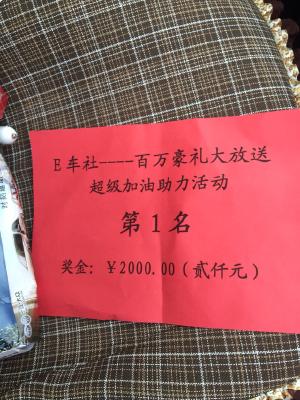 E车社----百万豪礼大放送
超级加油助力活动
第1名
奖金：￥2000.00（贰仟元）